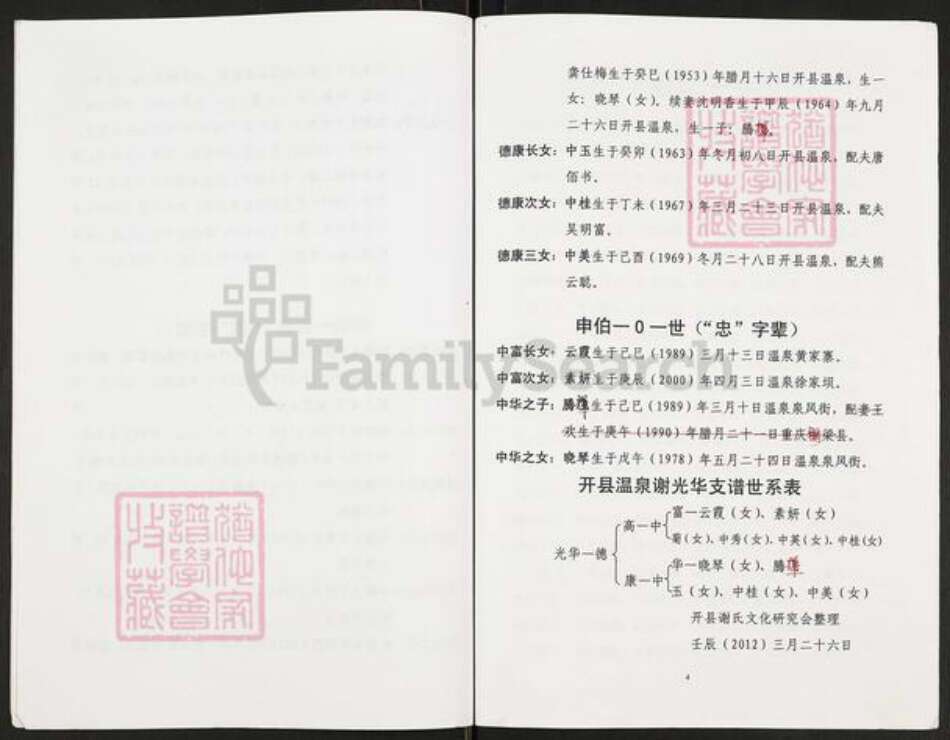 龚仕梅生于癸巳（1953）年腊月十六日开县温泉，生一
女：晓琴（女）。续妻沈明香生于甲辰（1964）年九月
二十六日开县温泉，生一子：腾
德康长女：中玉生于癸卯（1963）年冬月初八日开县温泉，配夫唐
佰书。
德康次女：中桂生于丁未（1967）年三月二十三日开县温泉，配夫
吴明富。
德康三女：中美生于己酉（1969）冬月二十八日开县温泉，配夫熊
云聪。
申伯一0一世（“忠”字辈）
中富长女：云霞生于己巳（1989）三月十三日温泉黄家寨。
中富次女：素妍生于庚辰（2000）年四月三日温泉徐家坝。
中华之子：腾 生于己巳（1989）年三月十日温泉泉凤街，配妻王
欢生于庚午（1990）年腊月二十一日重庆 梁县。
中华之女：晓琴生于戊午（1978）年五月二十四日温泉泉凤街。
开县温泉谢光华支谱世系表
富—云霞（女）、素妍（女）
高—中
菊（女）、中秀（女）、中英（女）、中桂（女）
光华—德
华—晓琴（女）、腾
康—中
玉（女）、中桂（女）、中美（女）
开县谢氏文化研究会整理
壬辰（2012）三月二十六日
4
FamilySearch